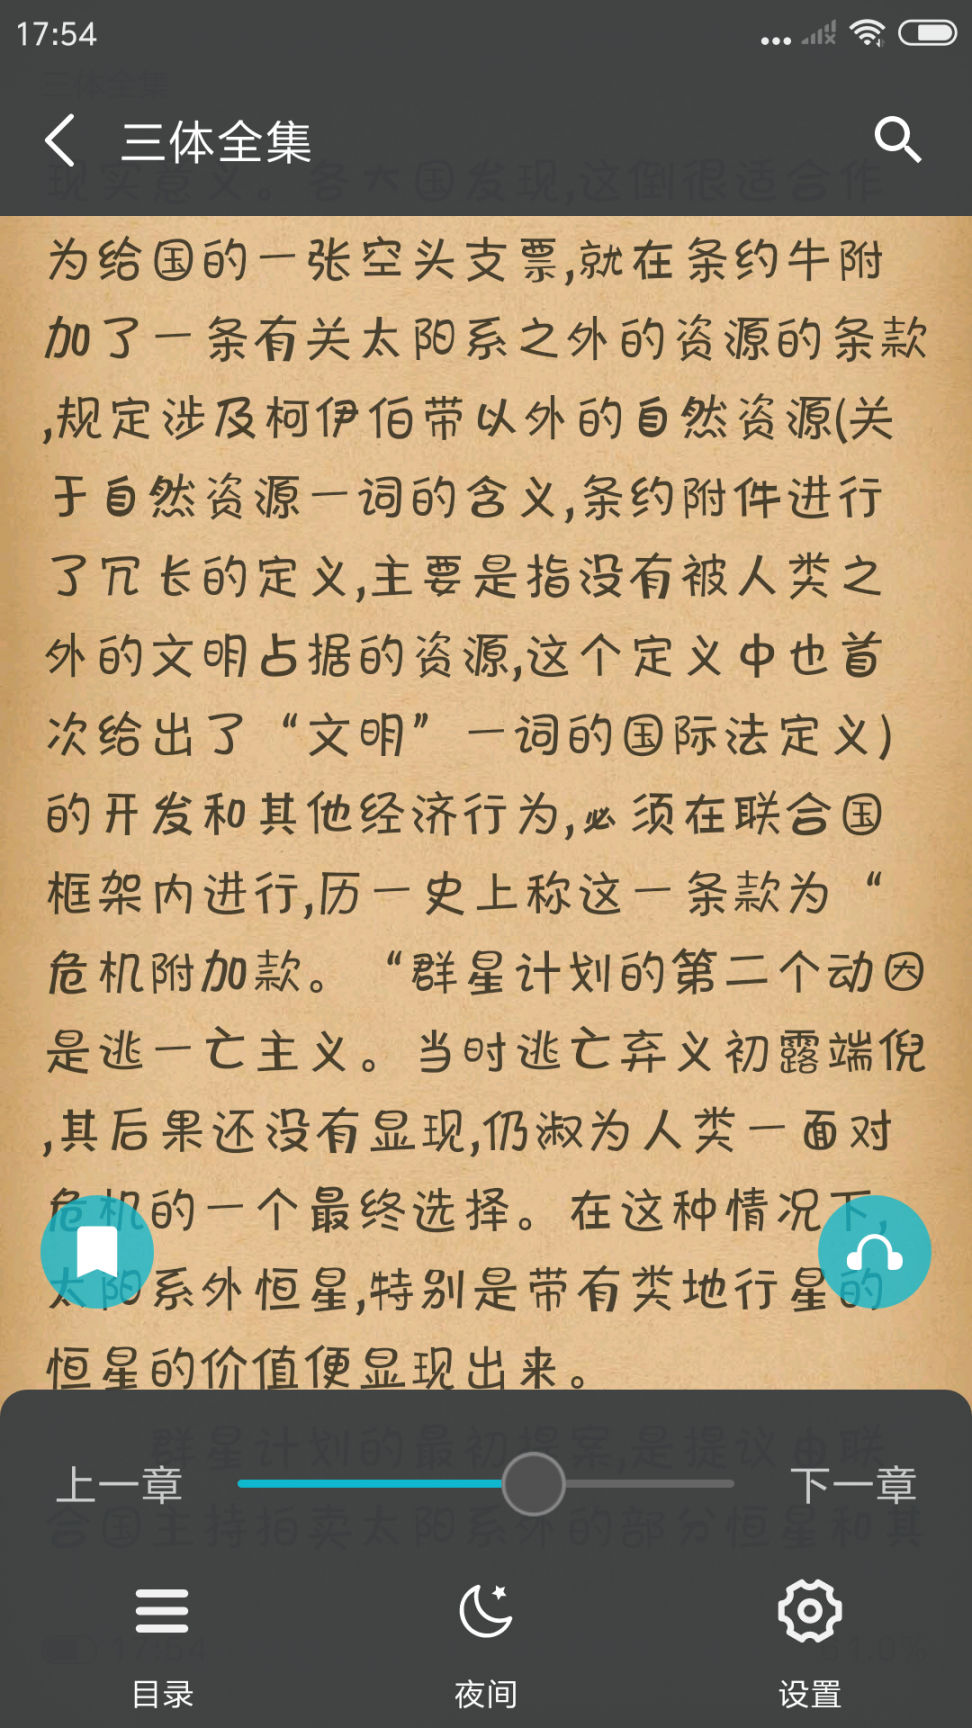 17:54
三体全集
三体全集
现实意义。各大国发现,这倒很适合作
为给国的一张空头支票,就在条约牛附
加了一条有关太阳系之外的资源的条款
,规定涉及柯伊伯带以外的自然资源(关
于自然资源一词的含义,条约附件进行
了冗长的定义,主要是指没有被人类之
外的文明占据的资源,这个定义中也首
次给出了“文明”一词的国际法定义)
的开发和其他经济行为,必须在联合国
框架内进行,历一史上称这一条款为“
危机附加款。“群星计划的第二个动因
是逃一亡主义。当时逃亡弃义初露端倪
,其后果还没有显现,仍淑为人类一面对
危机的一个最终选择。在这种情况下,
太阳系外恒星,特别是带有类地行星的
恒星的价值便显现出来。
群星计划的最初提案,是提议由联
合国主持拍卖太阳系外的部分恒星和其
上一章
下一章
17:54
目录
夜间
设置